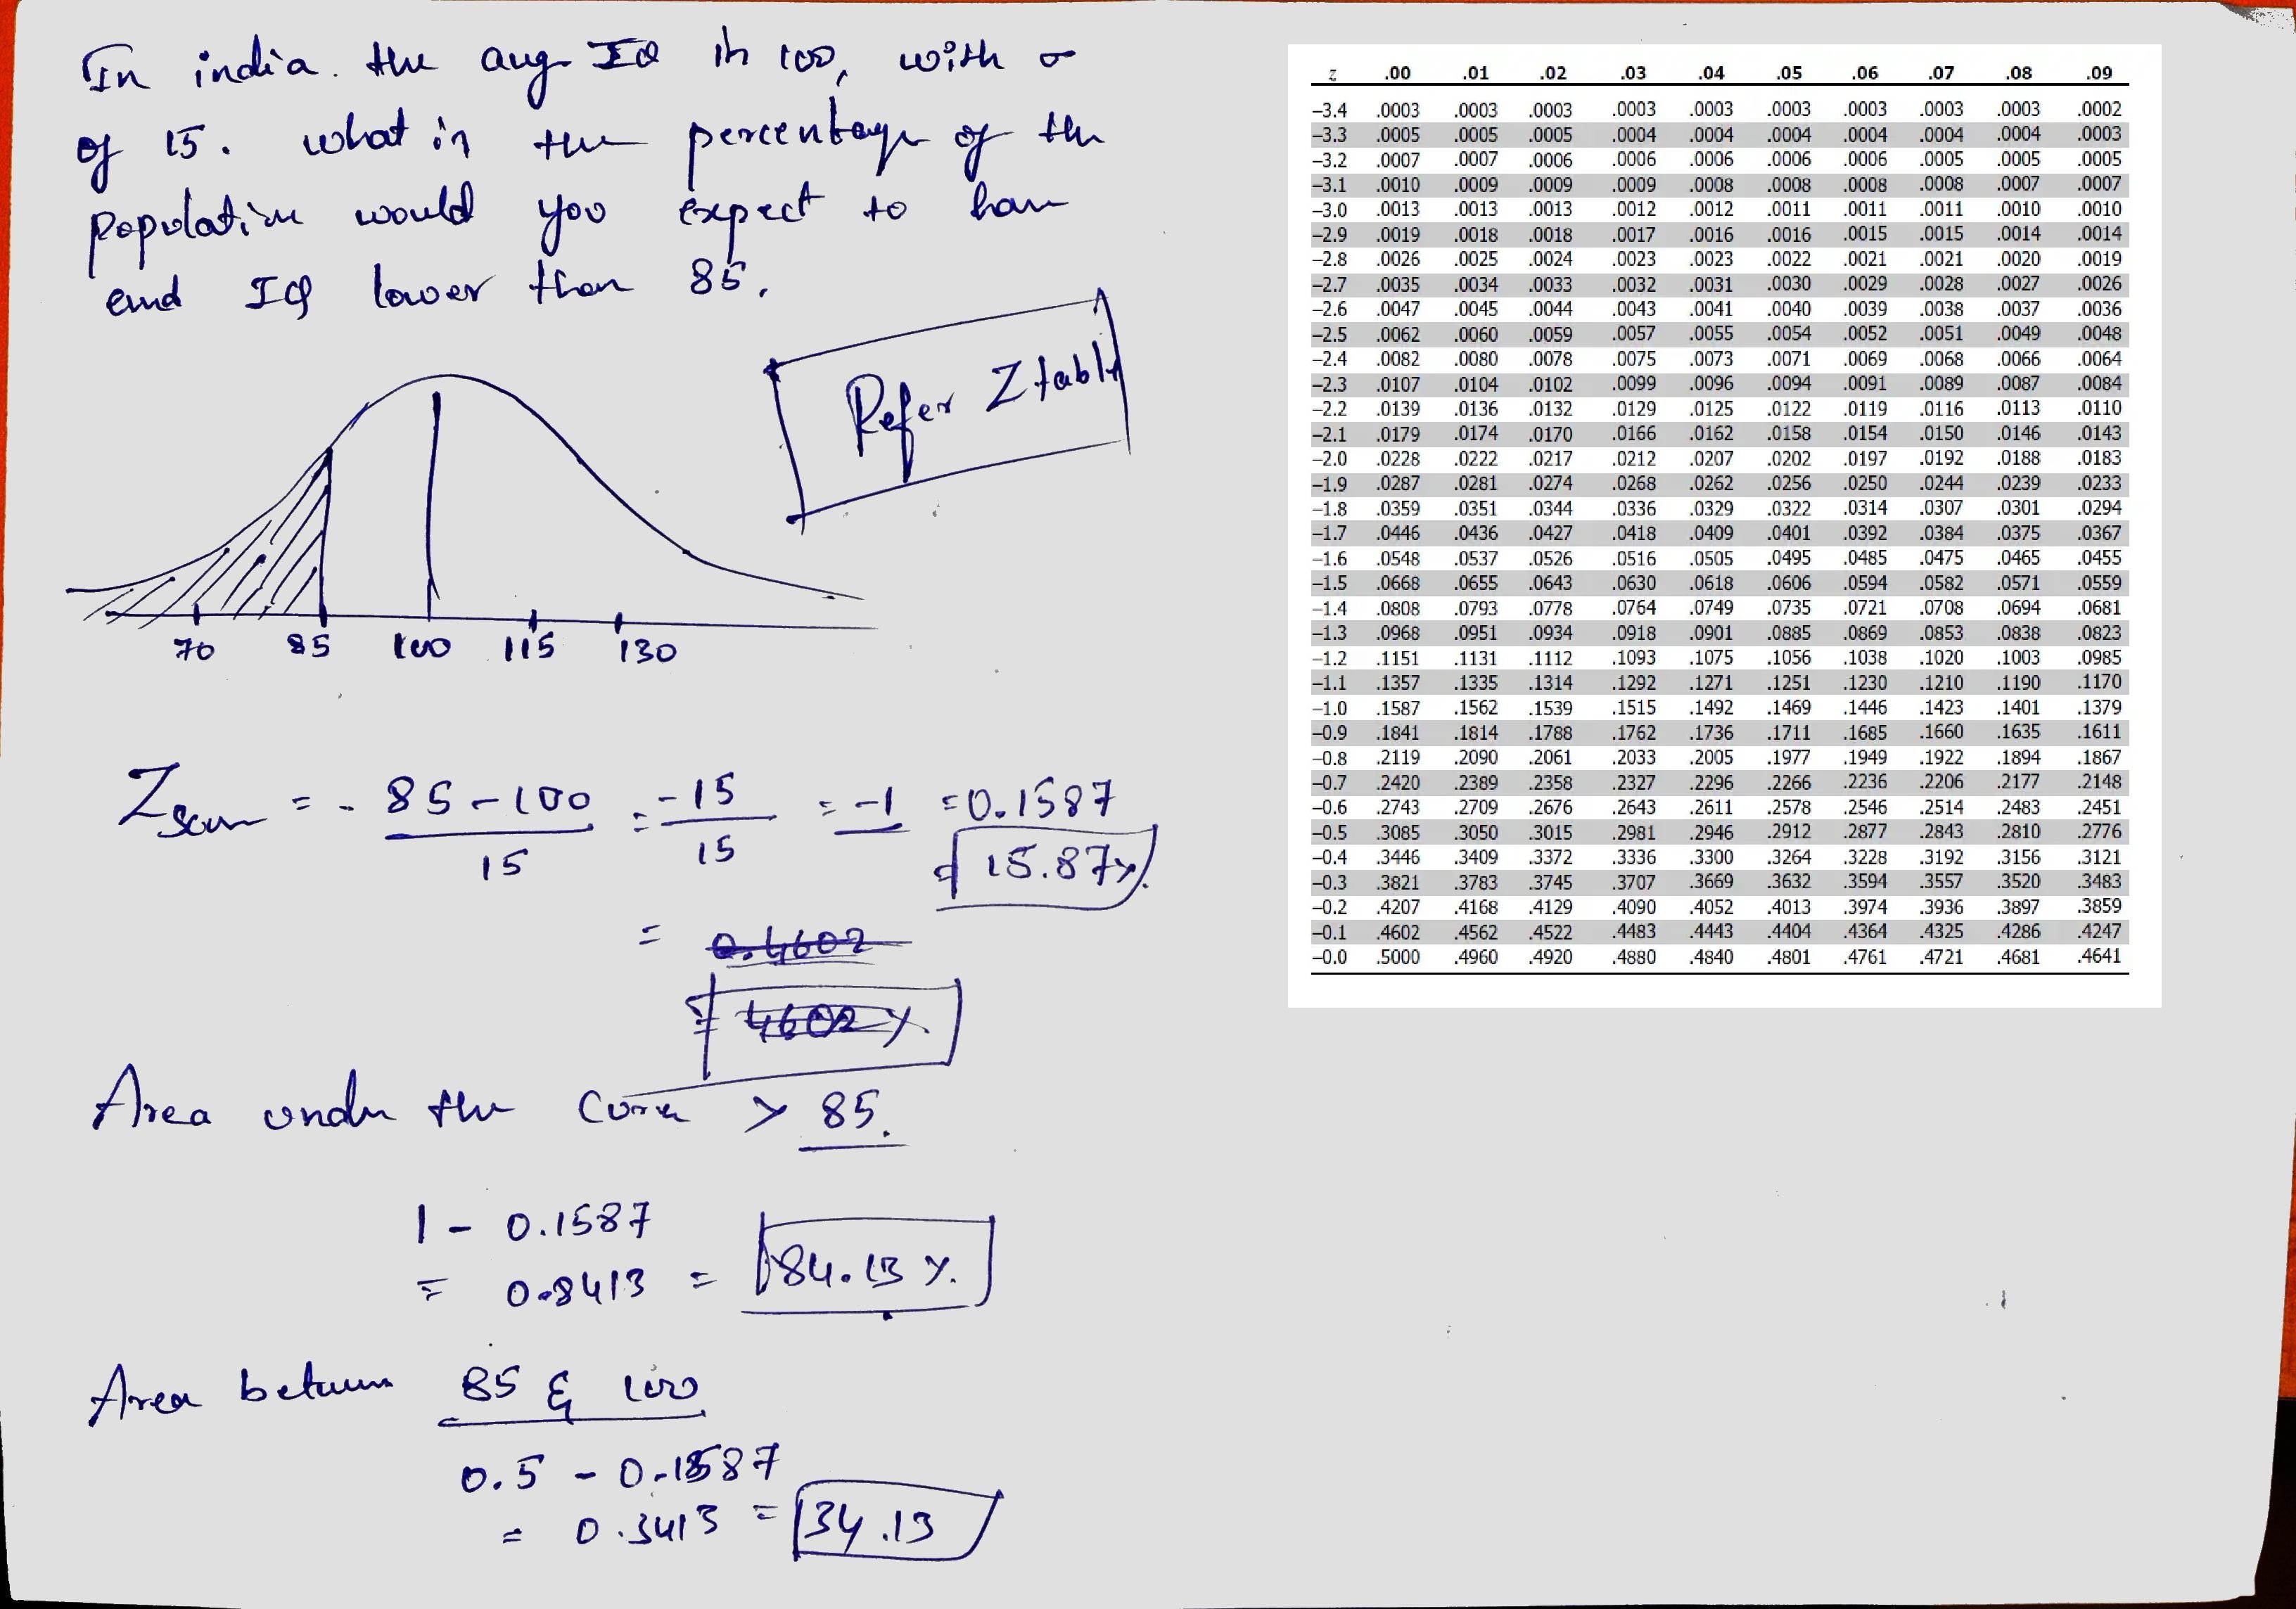 In india. the avg IQ is 100, with σ
of 15. what is the percentage of the
population would you expect to have
and IQ lower than 85.
Refer Z table
70 85 100 115 130
Z score = - 85-100 / 15 = -15 / 15 = -1 = 0.1587
= 15.87%
= 0.4602
= 4602 %
Area under the curve > 85.
1 - 0.1587
= 0.8413 = 84.13 %.
Area between 85 & 100
0.5 - 0.1587
= 0.3413 = 34.13
z .00 .01 .02 .03 .04 .05 .06 .07 .08 .09
−3.4 .0003 .0003 .0003 .0003 .0003 .0003 .0003 .0003 .0003 .0002
−3.3 .0005 .0005 .0005 .0004 .0004 .0004 .0004 .0004 .0004 .0003
−3.2 .0007 .0007 .0006 .0006 .0006 .0006 .0006 .0005 .0005 .0005
−3.1 .0010 .0009 .0009 .0009 .0008 .0008 .0008 .0008 .0007 .0007
−3.0 .0013 .0013 .0013 .0012 .0012 .0011 .0011 .0011 .0010 .0010
−2.9 .0019 .0018 .0018 .0017 .0016 .0016 .0015 .0015 .0014 .0014
−2.8 .0026 .0025 .0024 .0023 .0023 .0022 .0021 .0021 .0020 .0019
−2.7 .0035 .0034 .0033 .0032 .0031 .0030 .0029 .0028 .0027 .0026
−2.6 .0047 .0045 .0044 .0043 .0041 .0040 .0039 .0038 .0037 .0036
−2.5 .0062 .0060 .0059 .0057 .0055 .0054 .0052 .0051 .0049 .0048
−2.4 .0082 .0080 .0078 .0075 .0073 .0071 .0069 .0068 .0066 .0064
−2.3 .0107 .0104 .0102 .0099 .0096 .0094 .0091 .0089 .0087 .0084
−2.2 .0139 .0136 .0132 .0129 .0125 .0122 .0119 .0116 .0113 .0110
−2.1 .0179 .0174 .0170 .0166 .0162 .0158 .0154 .0150 .0146 .0143
−2.0 .0228 .0222 .0217 .0212 .0207 .0202 .0197 .0192 .0188 .0183
−1.9 .0287 .0281 .0274 .0268 .0262 .0256 .0250 .0244 .0239 .0233
−1.8 .0359 .0351 .0344 .0336 .0329 .0322 .0314 .0307 .0301 .0294
−1.7 .0446 .0436 .0427 .0418 .0409 .0401 .0392 .0384 .0375 .0367
−1.6 .0548 .0537 .0526 .0516 .0505 .0495 .0485 .0475 .0465 .0455
−1.5 .0668 .0655 .0643 .0630 .0618 .0606 .0594 .0582 .0571 .0559
−1.4 .0808 .0793 .0778 .0764 .0749 .0735 .0721 .0708 .0694 .0681
−1.3 .0968 .0951 .0934 .0918 .0901 .0885 .0869 .0853 .0838 .0823
−1.2 .1151 .1131 .1112 .1093 .1075 .1056 .1038 .1020 .1003 .0985
−1.1 .1357 .1335 .1314 .1292 .1271 .1251 .1230 .1210 .1190 .1170
−1.0 .1587 .1562 .1539 .1515 .1492 .1469 .1446 .1423 .1401 .1379
−0.9 .1841 .1814 .1788 .1762 .1736 .1711 .1685 .1660 .1635 .1611
−0.8 .2119 .2090 .2061 .2033 .2005 .1977 .1949 .1922 .1894 .1867
−0.7 .2420 .2389 .2358 .2327 .2296 .2266 .2236 .2206 .2177 .2148
−0.6 .2743 .2709 .2676 .2643 .2611 .2578 .2546 .2514 .2483 .2451
−0.5 .3085 .3050 .3015 .2981 .2946 .2912 .2877 .2843 .2810 .2776
−0.4 .3446 .3409 .3372 .3336 .3300 .3264 .3228 .3192 .3156 .3121
−0.3 .3821 .3783 .3745 .3707 .3669 .3632 .3594 .3557 .3520 .3483
−0.2 .4207 .4168 .4129 .4090 .4052 .4013 .3974 .3936 .3897 .3859
−0.1 .4602 .4562 .4522 .4483 .4443 .4404 .4364 .4325 .4286 .4247
−0.0 .5000 .4960 .4920 .4880 .4840 .4801 .4761 .4721 .4681 .4641